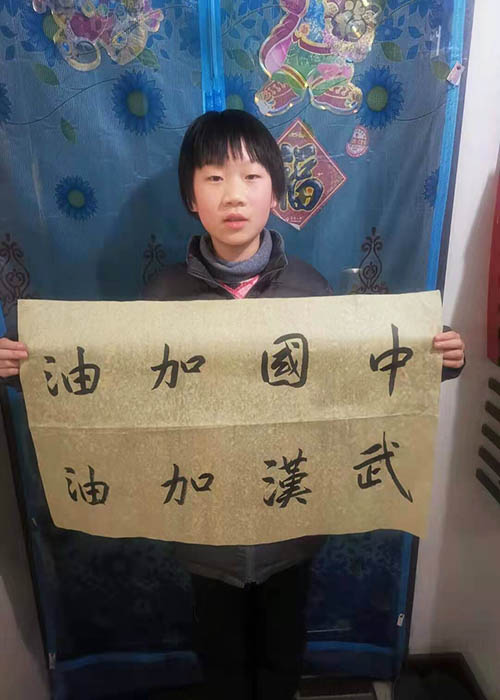 福
中國加油
武漢加油